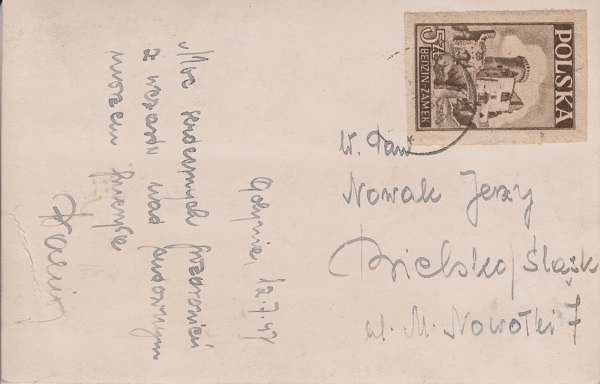 Gdynia, 12.7.47
Moc serdecznych pozdrowień
z wczasów nad cudownym
morzem
5 ZŁ
BĘDZIN-ZAMEK
POLSKA
W. Pan
Nowak Jerzy
Bielsko/Śląsk
ul. M. Nowotki 7